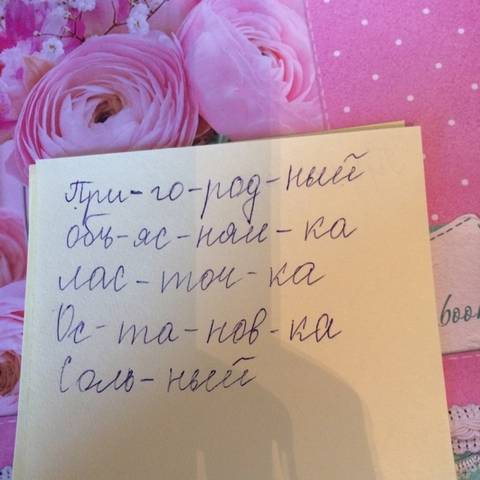 При-го-род-ный
Объ-яс-нял-ка
лас-точ-ка
Ос-та-нов-ка
Соль-ный
book